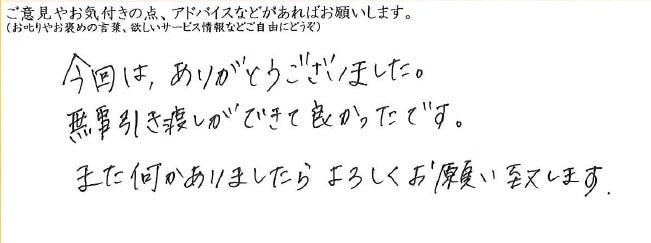 ご意見やお気付きの点、アドバイスなどがあればお願いします。
(お叱りやお褒めの言葉、欲しいサービス情報などご自由にどうぞ)
今回は、ありがとうございました。
無事引き渡しができて良かったです。
また何かありましたらよろしくお願い致します.